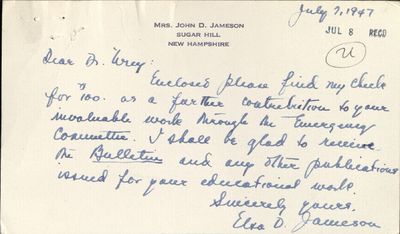 July 7, 1947
MRS. JOHN D. JAMESON
SUGAR HILL
NEW HAMPSHIRE
JUL 8 RECD
U
Dear Dr. Urey:
Enclosed please find my check
for $100. as a further contribution to your
invaluable work through the Emergency
Committee. I shall be glad to receive
the Bulletin and any other publications
issued for your educational work.
Sincerely yours,
Elsa D. Jameson